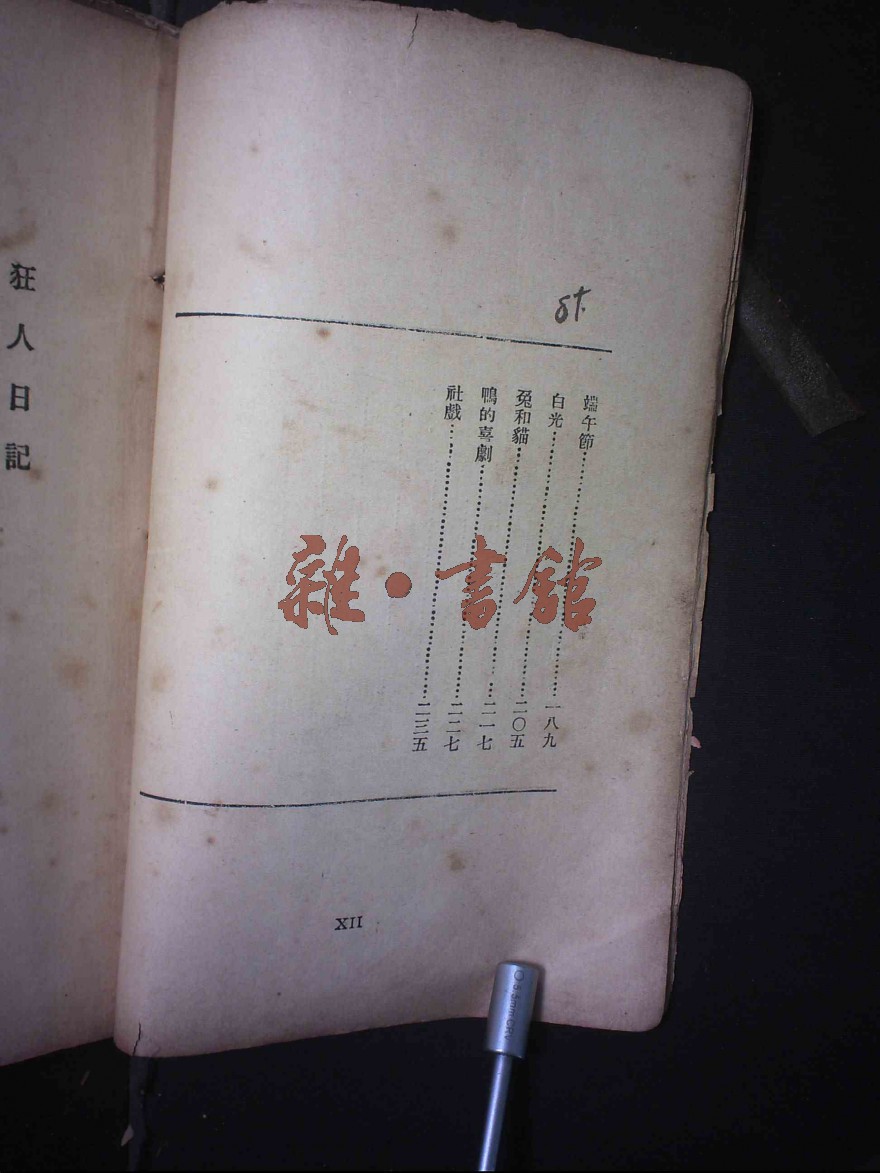 端午節⋯⋯⋯⋯⋯⋯一八九
白光⋯⋯⋯⋯⋯⋯二〇五
兔和貓⋯⋯⋯⋯⋯⋯二一七
鴨的喜劇⋯⋯⋯⋯⋯⋯二二七
社戲⋯⋯⋯⋯⋯⋯二三五
XII
狂人日記
雜·書館